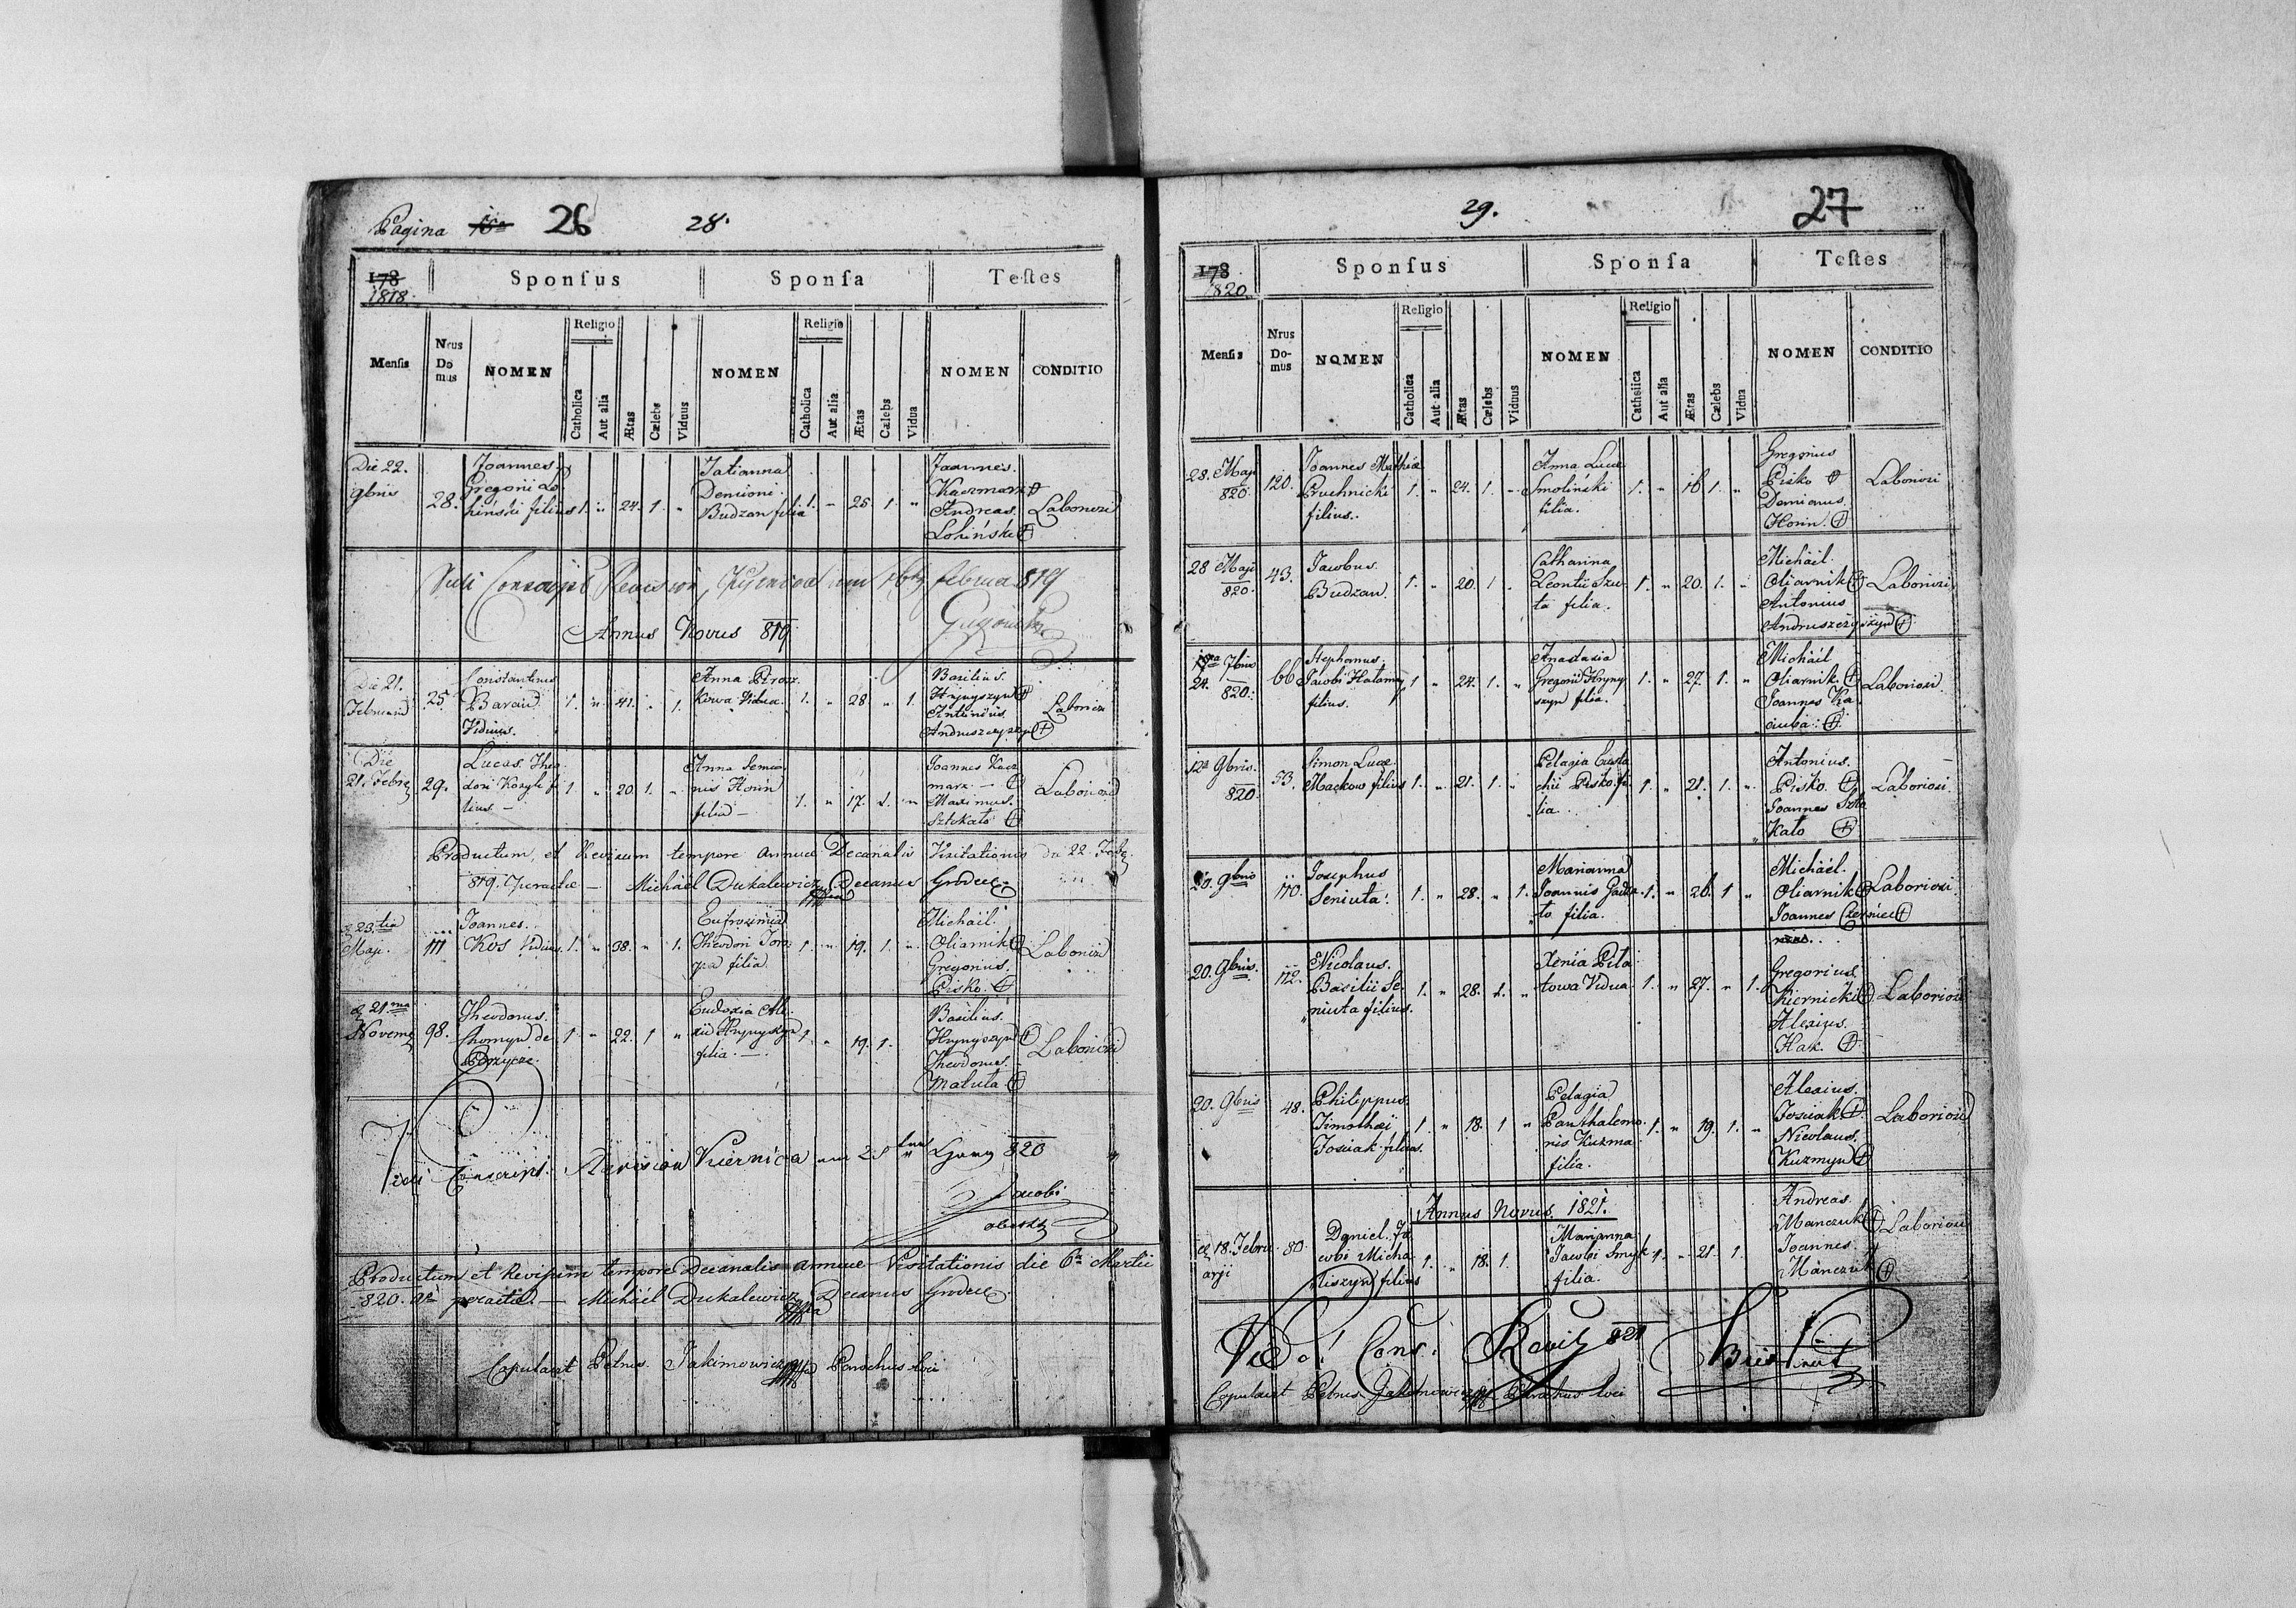 Pagina 16ta 26 28.
178 1818. Sponsus Sponsa Testes
Mensis Nrus Do mus NOMEN Religio Catholica Aut alia Ætas Cælebs Viduus NOMEN Religio Catholica Aut alia Ætas Cælebs Vidua NOMEN CONDITIO
Die 22. Joannes Tatianna Joannes
9bris Gregorii Lo Demioni Kaczmarz
28. hiński filius 1. " 24. 1. " Budzan filia 1. " 25. 1. " Andreas Laboriosi
Lohiński
Vidi februa 819
Annus Novus 819
Die 21. Constantinus Anna Basilius
Februarii 25. Baran 1. " 41. " 1. kowa Vidua 1. " 28. " 1. Hrynyszyn Laboriosi
Viduus. Antonius
Andruszczyszyn
Die Lucas Theo Anna Semeo Joannes Kacz
21. Febr 29. dori Kozyk fi 1. " 20 1. " nis Horin 1. " 17. 1. " marz Laboriosi
lius. filia Maximus
Sztokało
Productum, et Revisum tempore annuæ Decanalis Visitationis die 22. Feb
819. peractæ — Michaël Dukalewicz Decanus Grodec
d 23tia Joannes. Eufrozinia Michaël.
Maji. 111 Kos Viduus 1. " 38. " 1. Theodori 1. " 19. 1. " Oliarnik Laboriosi
filia Gregorius
Pisko.
d 21ma Theodorus. Eudoxia Ale Basilius
Novem 98. Chomyn de 1. " 22. 1 " xii Hrynyszyn 1. " 19. 1. Hrynyszyn Laboriosi
Porzycze. filia. Theodorus
Matuta
Vidi Conscrips. Revision 820
Jacobi
Productum et Revisum tempore Decanalis annuæ Visitationis die 6ta Martii
820. peractæ. — Michaël Dukalewicz Decanus Grodec
Copulavit Petrus Jakimowicz Parochus loci
29. 27
178 820 Sponsus Sponsa Testes
Mensis Nrus Do- mus NOMEN Religio Catholica Aut alia Ætas Cælebs Viduus NOMEN Religio Cathsiica Aut alia Ætas Cælebs Vidua NOMEN CONDITIO
Gregorius
28. Maji Joannes Mathiæ Anna Lucæ Pisko Laboriosi
820. 120. Pruchnicki 1. " 24. 1. " Smoliński 1. " 16 1. " Damianus
filius. filia. Horin.
Catharina Michaël.
28 Maji 43. Jacobus Leontii Szu 1. " 20. 1. Oliarnik Laboriosi
820. Budzan. 1. " 20. 1 . ta filia. Antonius
Andruszczyszyn
7bris Stephanus Anastasia Michaël
24. 820. 66 Jacobi Hałamay 1 " 24. 1. " Gregorii Hryny 1. " 27. 1. " Oliarnik Laboriosi
filius. szyn filia. Joannes Ka
ciuba.
12a 9bris. Simon Lucæ Pelagia Eusta Antonius.
820. 53. Maćkow filius 1. " 21. 1. " chii Pisko fi 1. " 21. 1. " Pisko. Laboriosi.
lia. Joannes Szto
kało
20. 9bris Josephus Marianna Michaël.
110. Seniuta 1. " 28. " 1. Joannis 1. " 26. 1 " Oliarnik Laboriosi.
filia. Joannes Czerniec
20. 9bris. 112. Nicolaus. Xenia Piła Gregorius
Basilii Se 1. " 28. 1. " towa Vidua 1. " 27. " 1. Kiernicki Laboriosi
niuta filius. Alexius.
Hak.
20. 9bris Philippus Pelagia Alexius.
48. Timothei 1. " 18. 1 " Panthalemo 1. " 19. 1. " Josiak Laboriosi
Josiak filius. nis Kuzma Nicolaus.
filia. Kuzmyn
Annus Novus. 1821. Andreas
d 18. Febru 80. Daniel. Ja Marianna Manczuk Laboriosi
arji cobi Micha 1. " 18. 1. Jacobi Smyk 1. " 21. 1. Joannes
liszyn filius filia. Manczuk
Vidi Cons. Revis 821
Copulavit Petrus Jakimowicz Parochus loci